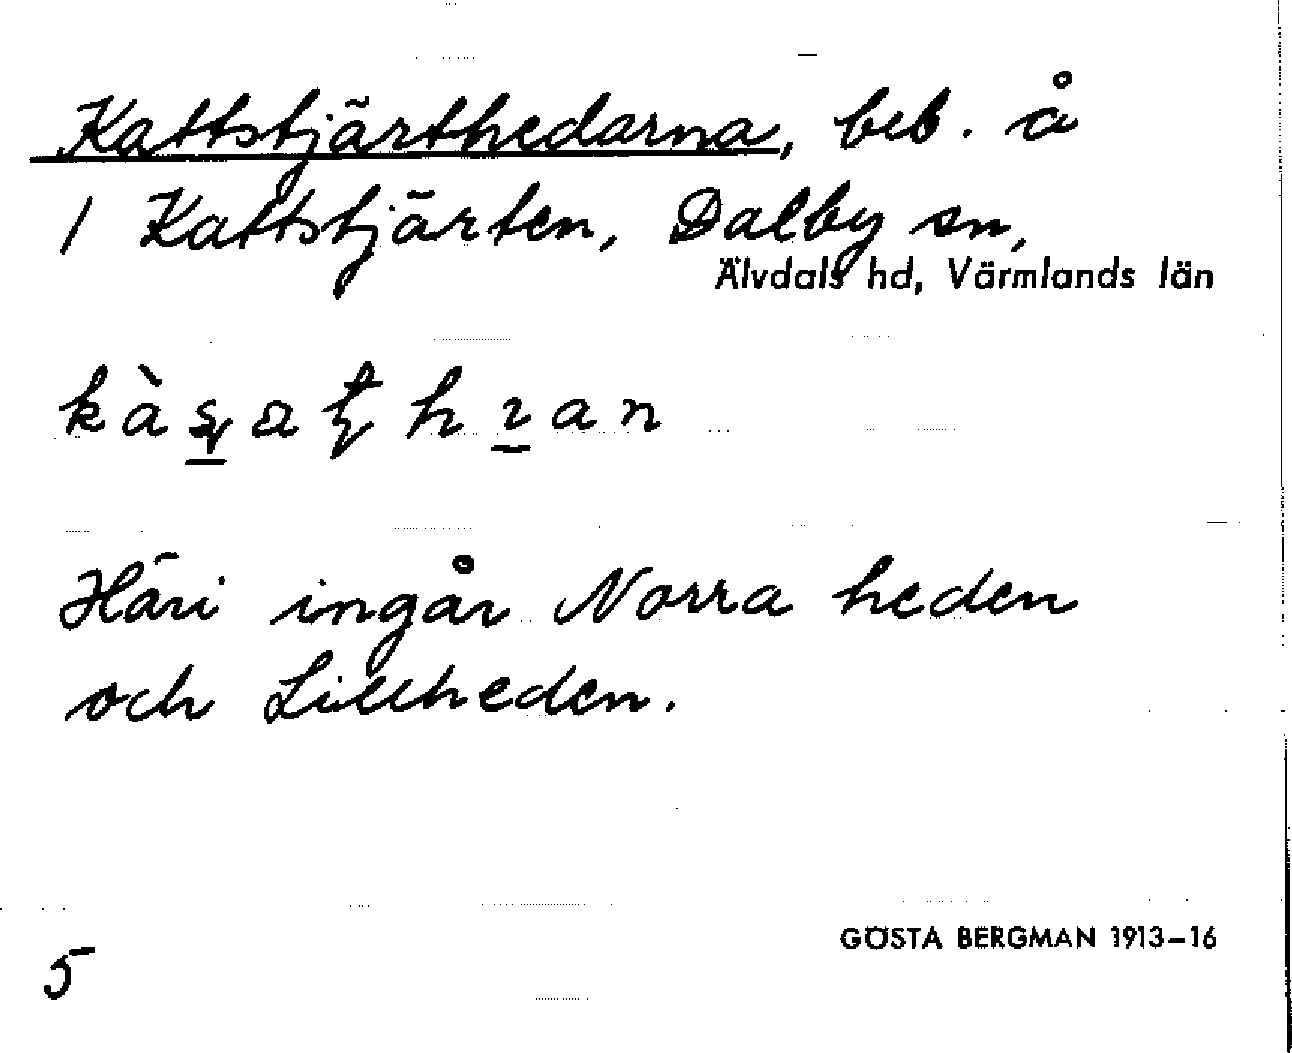 Kattstjärthedarna, beb. å
1 Kattstjärten, Dalby sn,
Älvdals hd, Värmlands län
Häri ingår Norra heden
och Lillheden.
GÖSTA BERGMAN 1913–16
5